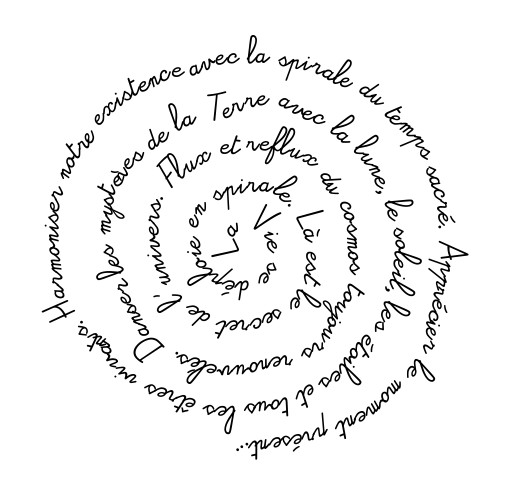 La Vie se déploie en spirale. Là est le secret de l'univers. Flux et reflux du cosmos toujours renouvelés. Danser les mystères de la Terre avec la lune, le soleil, les étoiles et tous les êtres vivants. Harmoniser notre existence avec la spirale du temps sacré. Apprécier le moment présent...